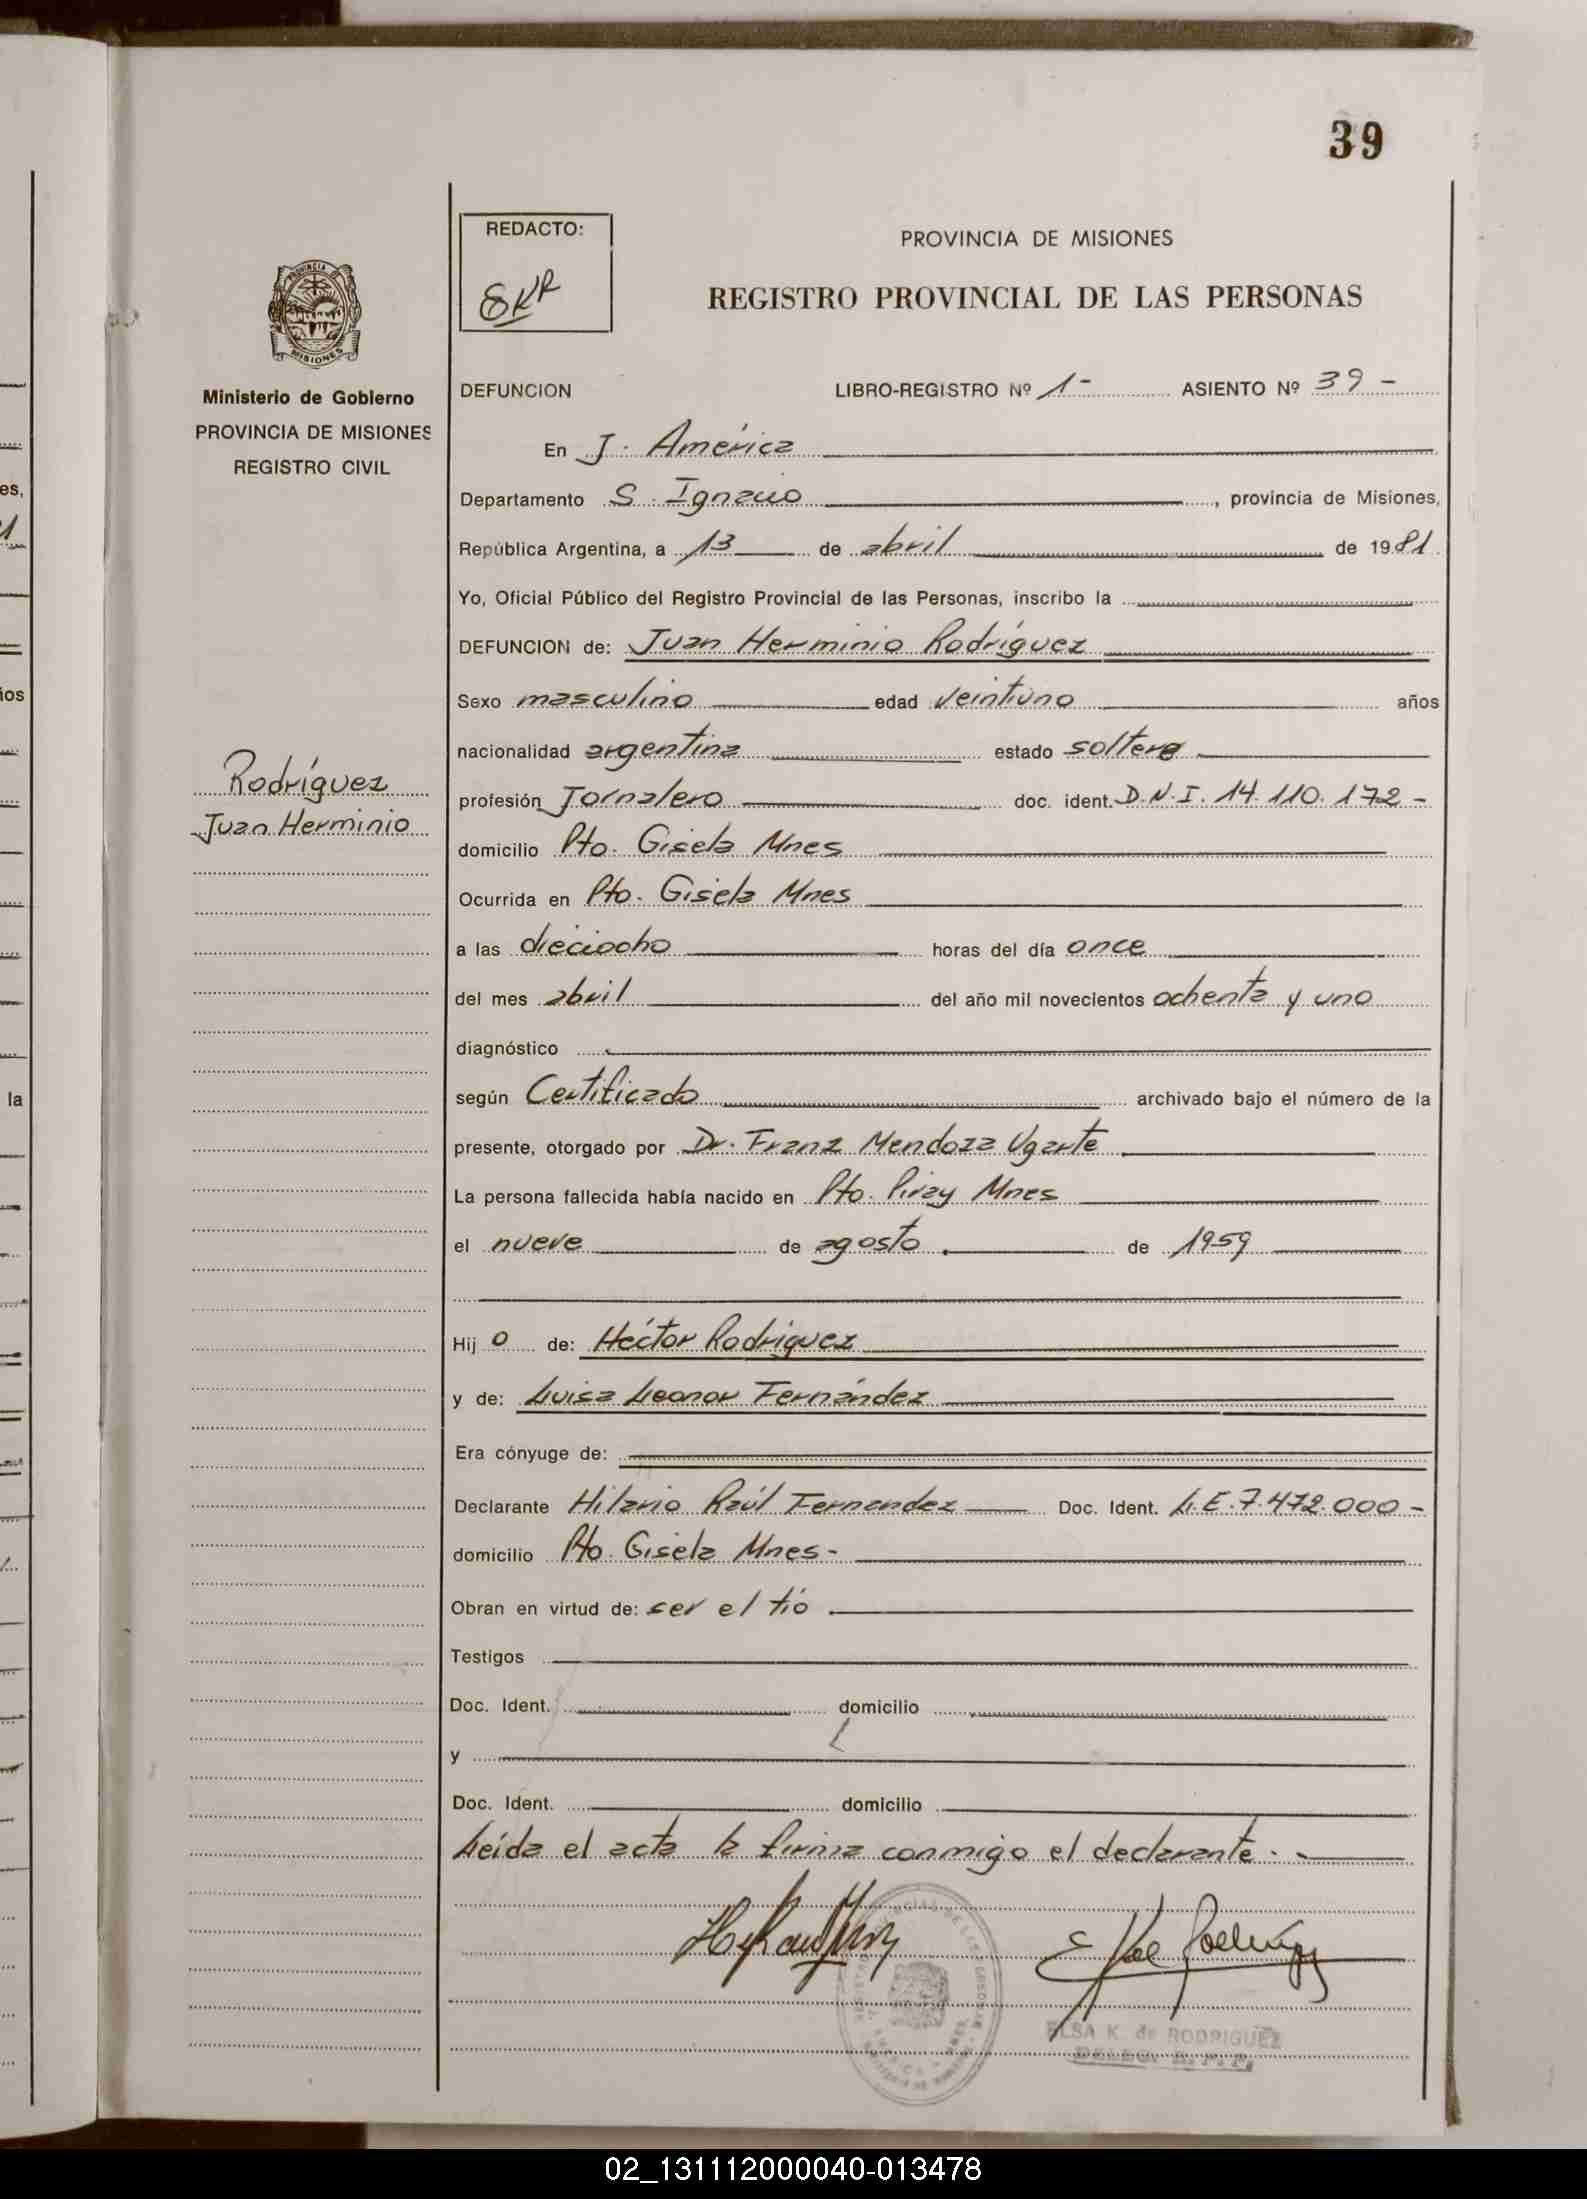 39
REDACTO:
EKR
PROVINCIA DE MISIONES
REGISTRO PROVINCIAL DE LAS PERSONAS
PROVINCIA DE
MISIONES
Ministerio de Gobierno
PROVINCIA DE MISIONES
REGISTRO CIVIL
Rodríguez
Juan Herminio
DEFUNCION LIBRO-REGISTRO Nº 1- ASIENTO Nº 39-
En J. América
Departamento S. Ignacio, provincia de Misiones,
República Argentina, a 13 de abril de 1981.
Yo, Oficial Público del Registro Provincial de las Personas, inscribo la
DEFUNCION de: Juan Herminio Rodríguez
Sexo masculino edad veintiuno años
nacionalidad argentina estado soltero
profesión Jornalero doc. ident. D.N.I. 14.110.172-
domicilio Pto. Gisela Mnes
Ocurrida en Pto. Gisela Mnes
a las dieciocho horas del día once
del mes abril del año mil novecientos ochenta y uno
diagnóstico
según Certificado archivado bajo el número de la
presente, otorgado por Dr. Franz Mendoza Ugarte
La persona fallecida había nacido en Pto. Piray Mnes
el nueve de agosto de 1959
Hijo de: Héctor Rodríguez
y de: Luisa Leonor Fernández
Era cónyuge de:
Declarante Hilario Raúl Fernandez Doc. Ident. L.E. 7.472.000-
domicilio Pto. Gisela Mnes-
Obran en virtud de: ser el tío
Testigos
Doc. Ident. domicilio
y
Doc. Ident. domicilio
Leída el acta la firma conmigo el declarante.-
ELSA K. de RODRIGUEZ
DELEG. R. P. P.
es,
1
ios
la
02_131112000040-013478